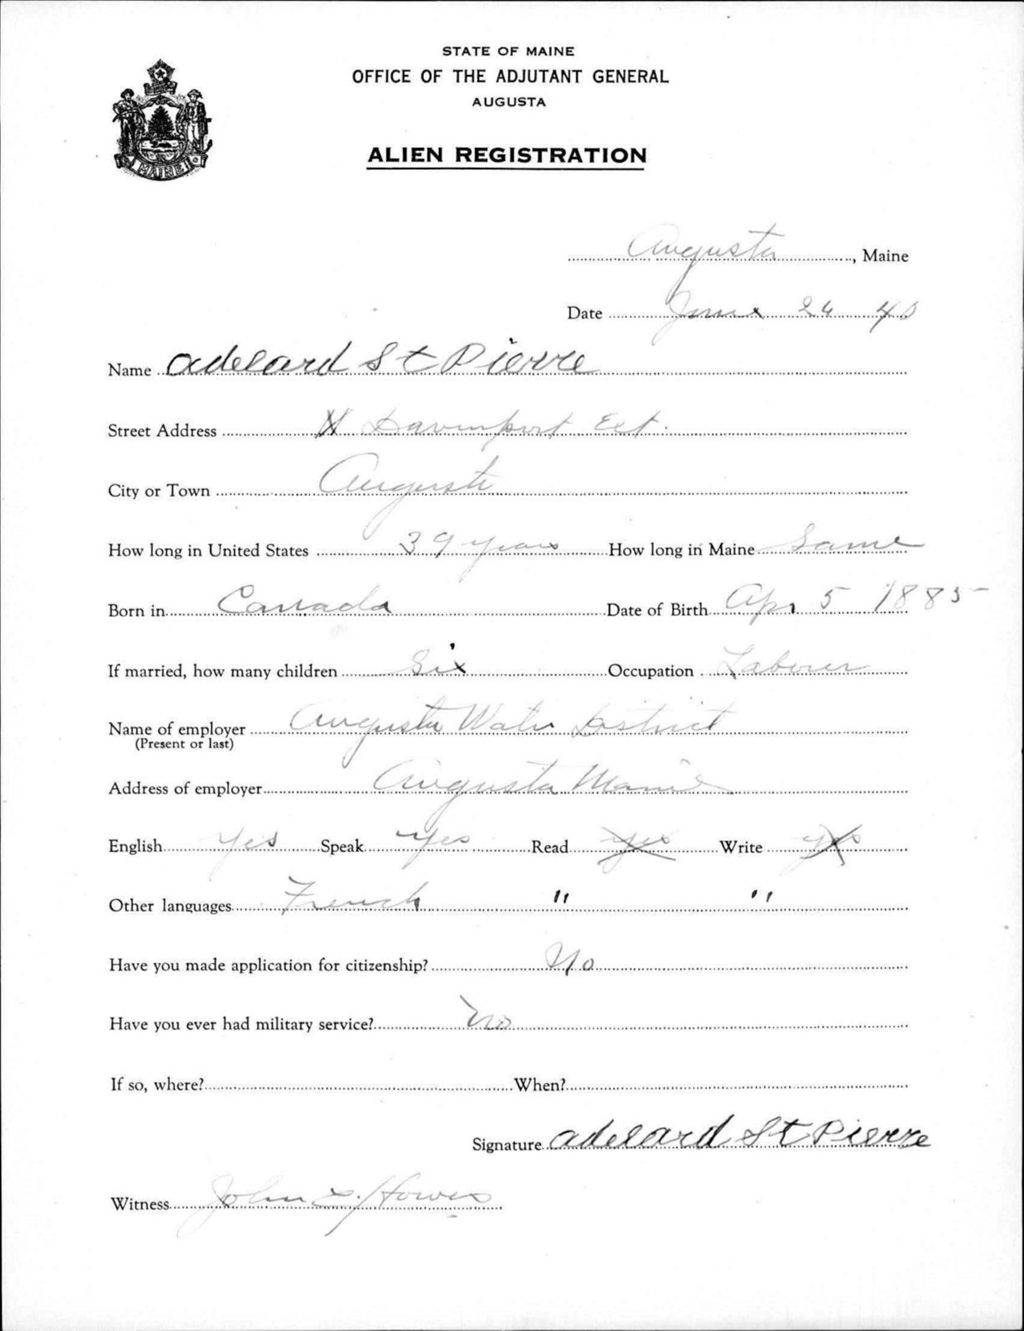 STATE OF MAINE
OFFICE OF THE ADJUTANT GENERAL
AUGUSTA
ALIEN REGISTRATION
MAINE
Augusta, Maine
Date June 24 40
Name Adelard St Pierre
Street Address Davenport Ext.
City or Town Augusta
How long in United States 39 years How long in Maine Same
Born in Canada Date of Birth Apr 5 1885
If married, how many children Six Occupation Laborer
Name of employer Augusta Water District
(Present or last)
Address of employer Augusta Maine
English Yes Speak Yes Read yes Write yes
Other languages French " "
Have you made application for citizenship? No
Have you ever had military service? No
If so, where? When?
Signature Adelard St Pierre
Witness John Howes